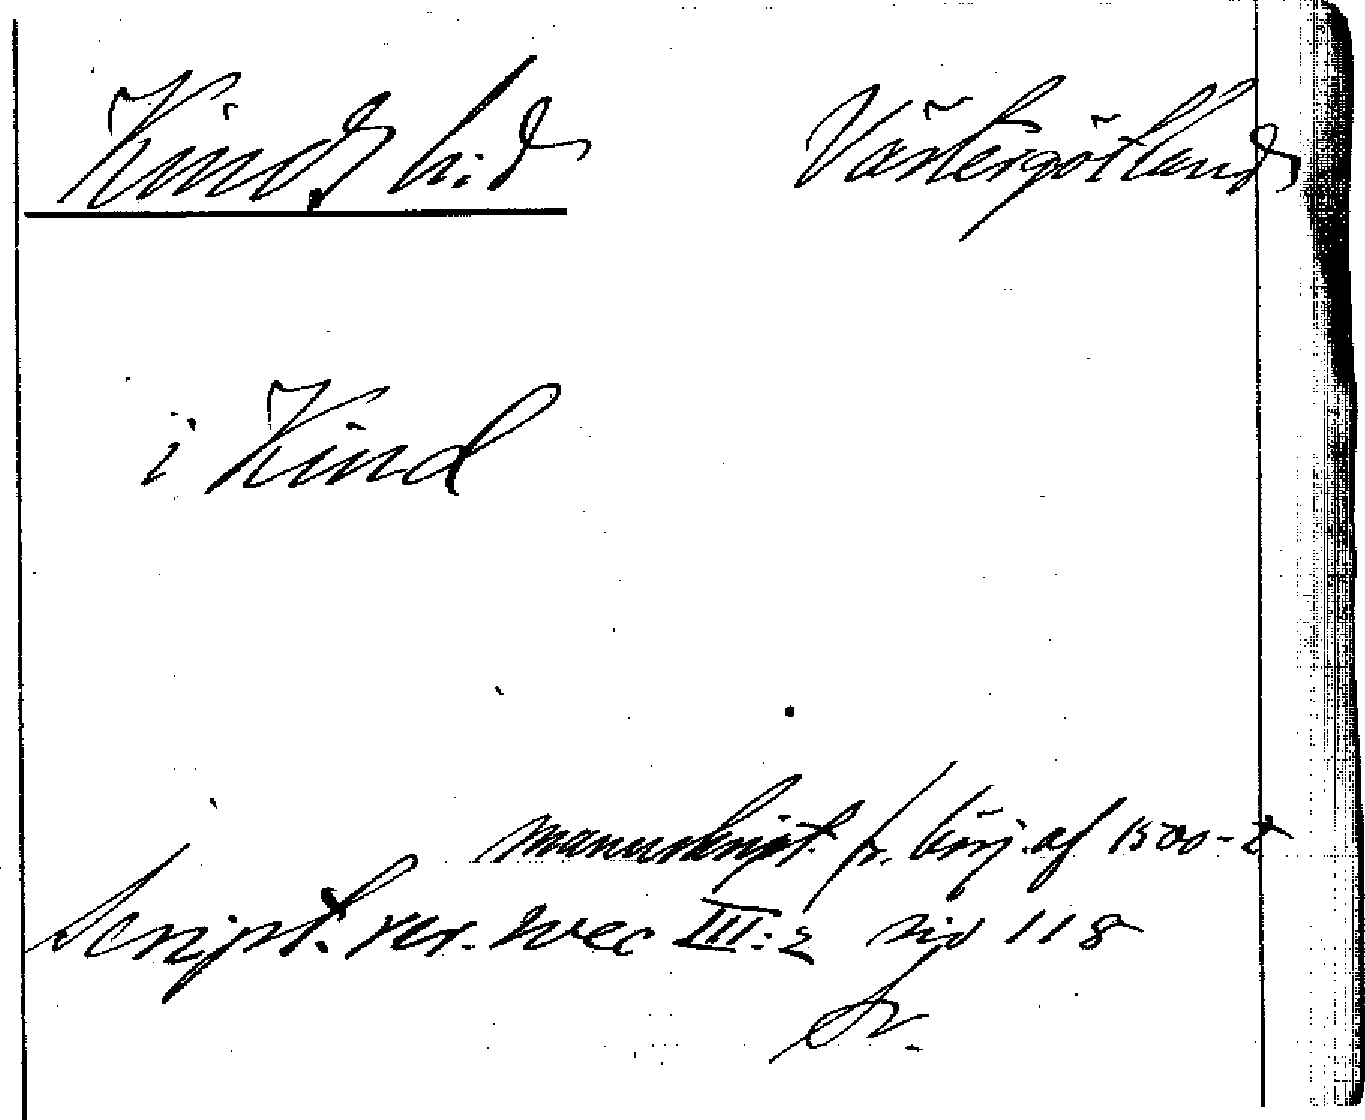 Kinds h:d Västergötland
i Kind
manuskript. fr. börj. af 1500-t
Script. rer. svec III:2 sid 118